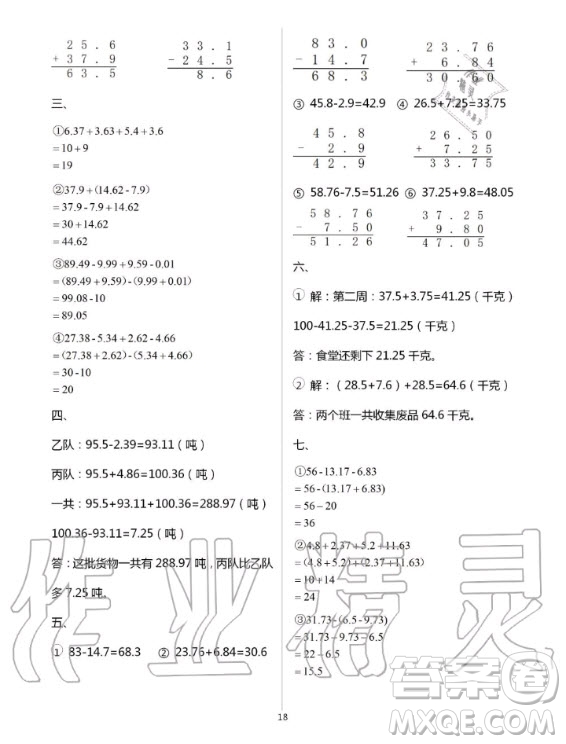 2 5 . 6
+ 3 7 . 9
6 3 . 5
3 3 . 1
- 2 4 . 5
8 . 6
三、
①6.37+3.63+5.4+3.6
=10+9
=19
②37.9+(14.62-7.9)
=37.9-7.9+14.62
=30+14.62
=44.62
③89.49-9.99+9.59-0.01
=(89.49+9.59)-(9.99+0.01)
=99.08-10
=89.05
④27.38-5.34+2.62-4.66
=(27.38+2.62)-(5.34+4.66)
=30-10
=20
四、
乙队：95.5-2.39=93.11（吨）
丙队：95.5+4.86=100.36（吨）
一共：95.5+93.11+100.36=288.97（吨）
100.36-93.11=7.25（吨）
答：这批货物一共有 288.97 吨，丙队比乙队
多 7.25 吨。
五、
① 83-14.7=68.3 ② 23.75+6.84=30.6
8 3 . 0
- 1 4 . 7
6 8 . 3
2 3 . 7 6
+ 6 . 8 4
3 0 . 6 0
③ 45.8-2.9=42.9 ④ 26.5+7.25=33.75
4 5 . 8
- 2 . 9
4 2 . 9
2 6 . 5 0
+ 7 . 2 5
3 3 . 7 5
⑤ 58.76-7.5=51.26 ⑥ 37.25+9.8=48.05
5 8 . 7 6
- 7 . 5 0
5 1 . 2 6
3 7 . 2 5
+ 9 . 8 0
4 7 . 0 5
六、
① 解：第二周：37.5+3.75=41.25（千克）
100-41.25-37.5=21.25（千克）
答：食堂还剩下 21.25 千克。
② 解：（28.5+7.6）+28.5=64.6（千克）
答：两个班一共收集废品 64.6 千克。
七、
①56-13.17-6.83
=56-(13.17+6.83)
=56-20
=36
②4.8+2.37+5.2+11.63
=(4.8+5.2)+(2.37+11.63)
=10+14
=24
③31.73-(6.5+9.73)
=31.73-9.73-6.5
=22-6.5
=15.5
18
作业精灵
答案圈
MXQE.COM